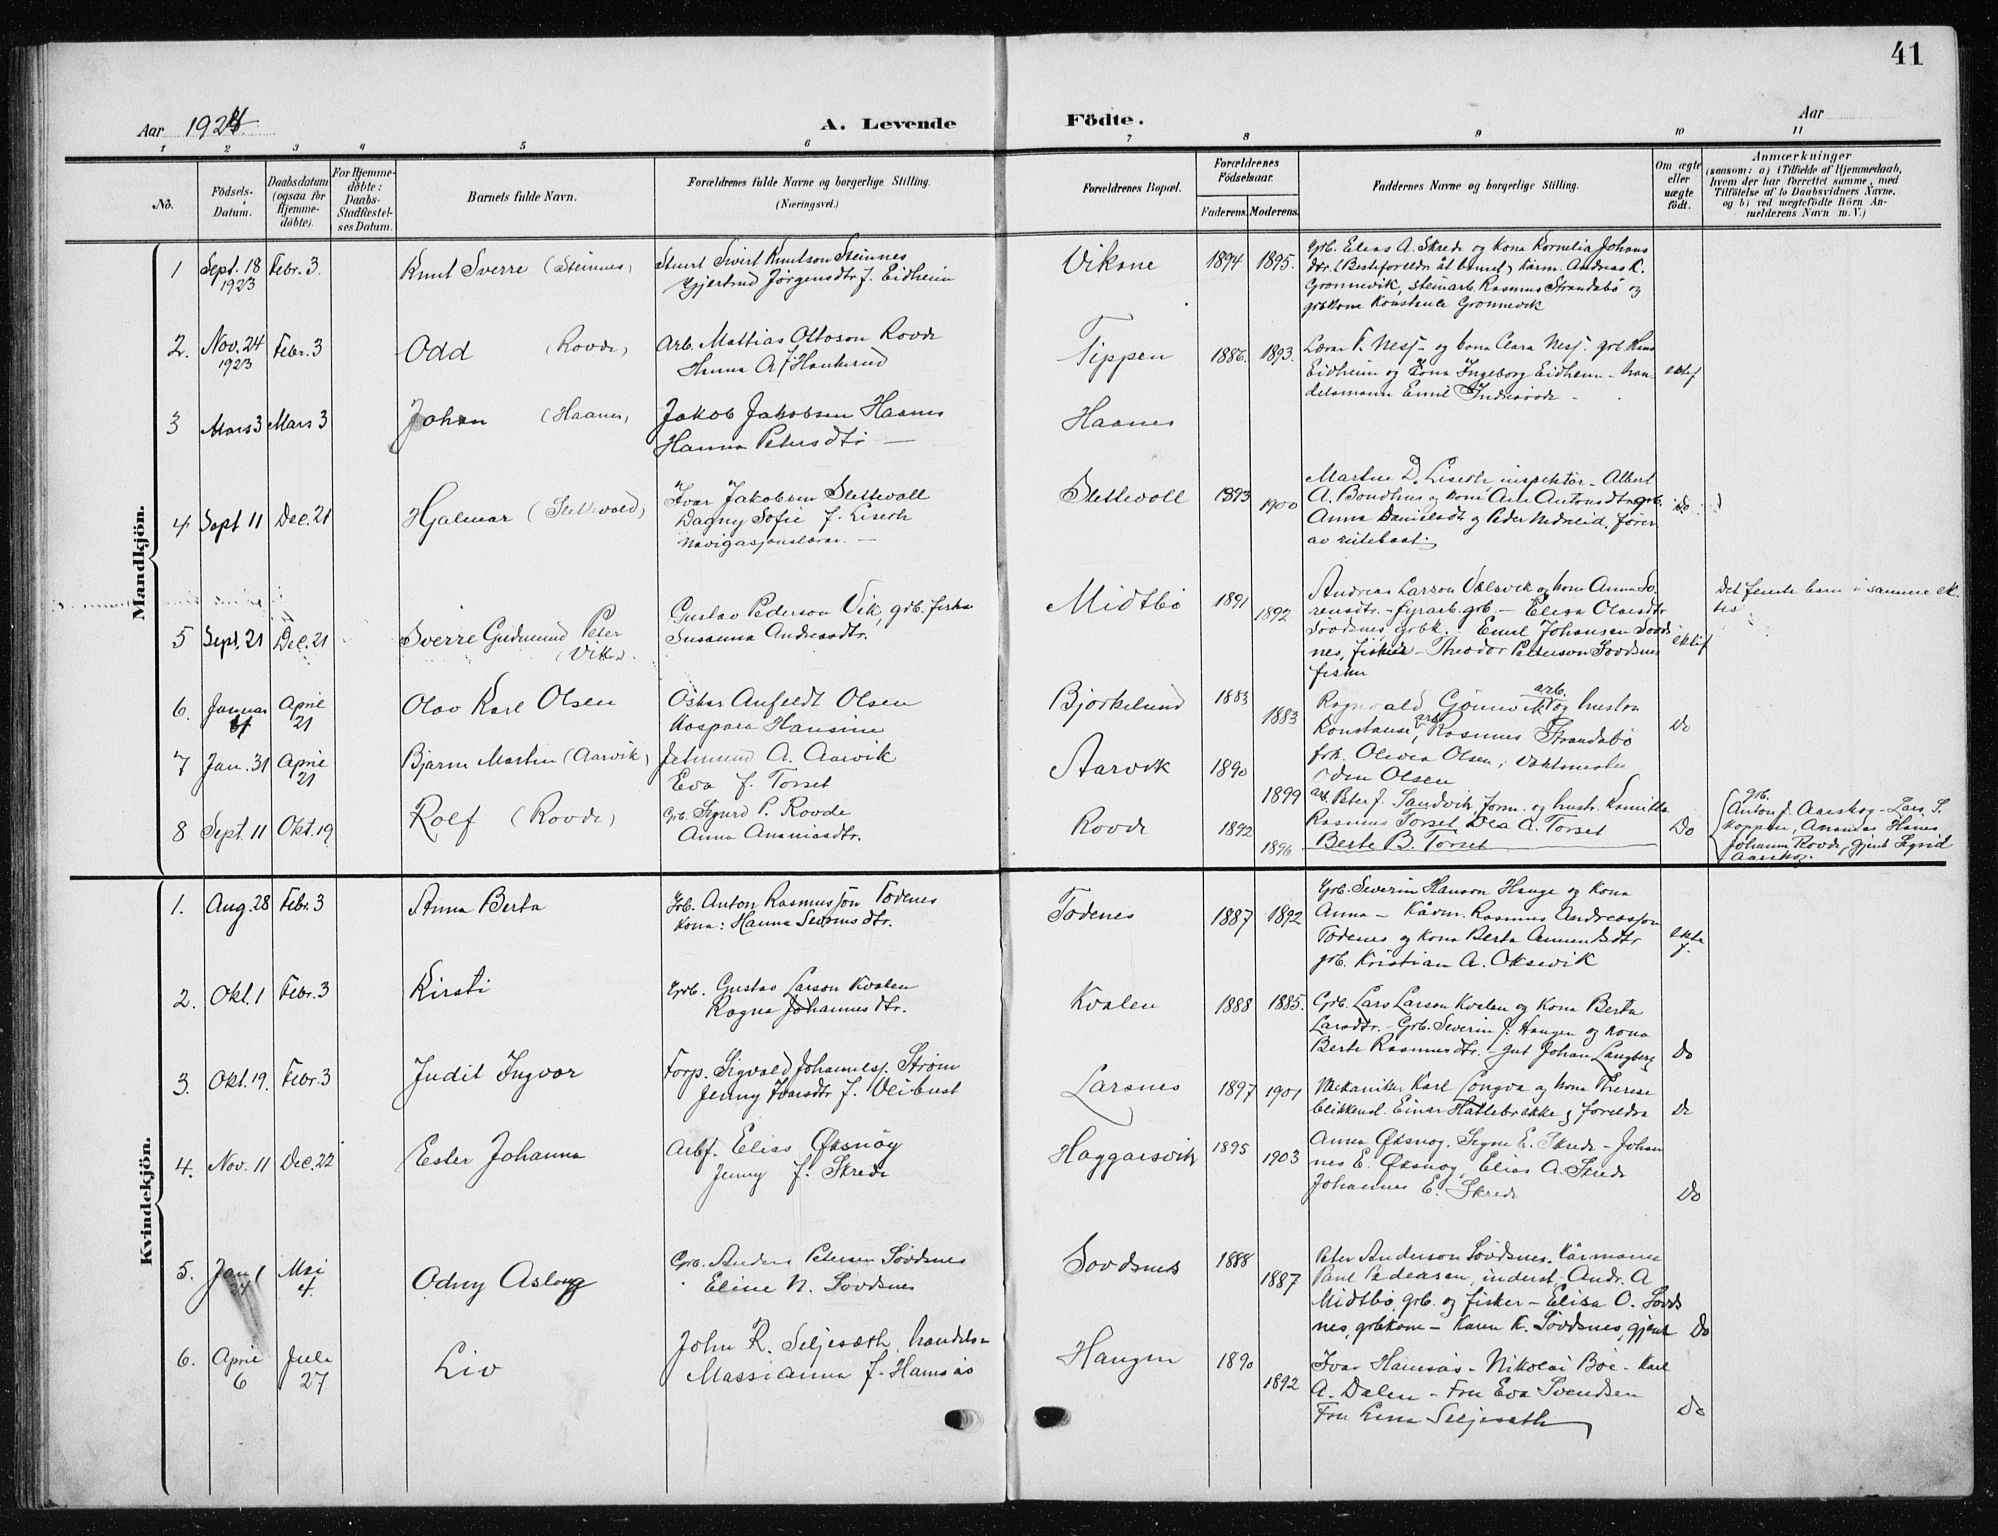 41
Aar 1924
A. Levende Födte.
Aar
1 2 3 4 5 6 7 8 9 10 11
No.
Födsels-Datum.
Daabsdatum (ogsaa for Hjemme-døbte).
For Hjemme-døbte: Daabs-Stadfæstel-ses Datum.
Barnets fulde Navn.
Forældrenes fulde Navne og borgerlige Stilling. (Næringsvei.)
Forældrenes Bopæl.
Forældrenes Födselsaar.
Faderens. Moderens.
Faddernes Navne og borgerlige Stilling.
Om ægte eller uægte født.
Anmærkninger
(saasom: a) i Tilfælde af Hjemmedaab, hvem der har forrettet samme, med Tilföielse af to Daabsvidners Navne, og b) ved uægtefödte Börn An-melderens Navn m. V.)
Mandkjön.
1 Sept. 18 1923 Febr. 3. Knut Sverre (Steinnes)
Sivert Knutson Steinnes
Gjertrud Jørgensdtr f. Eidheim
Vikane 1894 1895.
Grb. Elias A. Skrede og kona Kornelia Johans
dtr. (Besteforeldre åt barnet) Andreas K.
Grønnevik, steinarb. Rasmus Strandabø og
grbkone Konstanse Grønnevik
2. Nov. 24 1923 Febr. 3 Odd (Rovde)
Arb. Mattias Ottoson Rovde
Hanna A. f. Haukerud
Tippen 1886. 1893.
Lærar T. Nesj og kona Clara Nesj. grb. Hans
Eidheim og kona Ingeborg Eidheim - han-
delsmann Emil Indresovde -
ektef
3 Mars 3 Mars 3 Johan (Haanes)
Jakob Jakobsen Haanes
Hanna Petersdtr —
Haanes
4 Sept 11 Dec. 21 Hjalmar (Slettevold)
Ivar Jakobsen Slettevoll
Dagny Sofie f. Liseth
Navigasjonslærar. —
Slettevoll 1893 1900
Martin D. Liseth inspektør - Albert
A. Bondhus og kona Ane Antonsdtr grb.
Anna Danielsdtr og Peder Nedreleid, fører
av rutebaat.
Do
5 Sept. 21 Dec. 21 Sverre Gudmund Peter
(Vik).
Gustav Pederson Vik, grb. fisker
Susanna Andreasdtr.
Midtbø 1891 1892
Andreas Larson Vaksvik og kona Anna So-
rensdtr. - fyrarb. grb. - Elisa Olaisdtr
Sovdsnes grbk. Emil Johansen Sovds
nes, fisker - Theodor Pederson Sovdsnes
fisker
ektef
Det femte barn i samme ek-
te
6. Januar April 21 Olav Karl Olsen
Oskar Anfeldt Olsen
Kaspara Hansine
Bjørkelund 1883 1883
Ragnvald Grønnevik arb. og hustru
Konstanse, arb. Rasmus Strandabø
frk. Olivia Olsen, vaktmester
Odin Olsen
Do
7 Jan. 31 April 21 Bjarne Martin (Aarvik)
Jetmund A. Aarvik
Eva f. Torset
Aarvik 1890 1899
arb. Peter J. Sandvik, form. og hustr. Kamilla
Rasmus Torset Dea A. Torset
Berte B. Torset
8 Sept. 11 Okt. 19 Rolf (Rovde)
Grb. Sigurd P. Rovde
Anna Ananiasdtr.
Rovde 1892 1896
Do
grb.
Anton J. Aarskog - Lars S.
Koppen, Ananias Hanes
Johanna Rovde, gjent Sigrid
Aarskog.
Kvindekjön.
1. Aug. 28 Febr. 3 Anna Berta
Grb. Anton Rasmusson Todenes
Kona: Hanna Severinsdtr.
Todenes 1887 1892
Grb. Severin Hanson Hauge og kona
Anna - Kårm. Rasmus Andreasson
Todenes og kona Berta Ammundsdtr
grb. Kristian A. Oksevik
ekte
f.
2. Okt. 1 Febr. 3 Kirsti
Grb. Gustav Larson Kvalen
Ragna Johannesdtr.
Kvalen 1888 1885.
Grb. Lars Larson Kvalen og kona Berta
Larsdtr. - Grb. Severin J. Haugen og kona
Berte Rasmusdtr. - gut Johan Langberg
Do
3. Okt. 19. Febr. 3 Judit Ingvor
Forp. Sigvald Johannesj. Strøm
Jenny Ivarsdtr f. Vleibust
Larsnes 1897 1901
Mekaniker Karl Longva og kona Therese
blikkensl. Einar Hattebrekke og foreldra
Do
4. Nov. 11 Dec. 22 Ester Johanna
Arbf. Elias Øksnøy
Jenny f. Skrede
Haggarsvik 1895 1903
Anna Øksnøy. Signe E. Skrede - Johan
nes E. Øksnøy, Elias A. Skrede
Johannes E. Skrede
Do
5. Jan 1 24 Mai 4. Odny Aslaug
Grb. Anders Petersen Sovdsnes
Eline N. Sovdsnes
Sovdsnes 1888 1887
Peter Anderson Sovdsnes, Kårmann
Paul Pedersen, inderst, Andr. A
Midtbø, grb. og fisker - Elisa O. Sovds
nes, grbkone - Karen K. Sovdsnes, gjent
Do
6. April 6 Juli 27 Liv
John R. Seljesæth, handels-
Massianna f. Hamsås
Haugen 1890 1892
Ivar Hamsås - Nikolai Bøe - Karl
A. Dalen - Fru Eva Svendsen
Fru Lina Seljesæth
Do